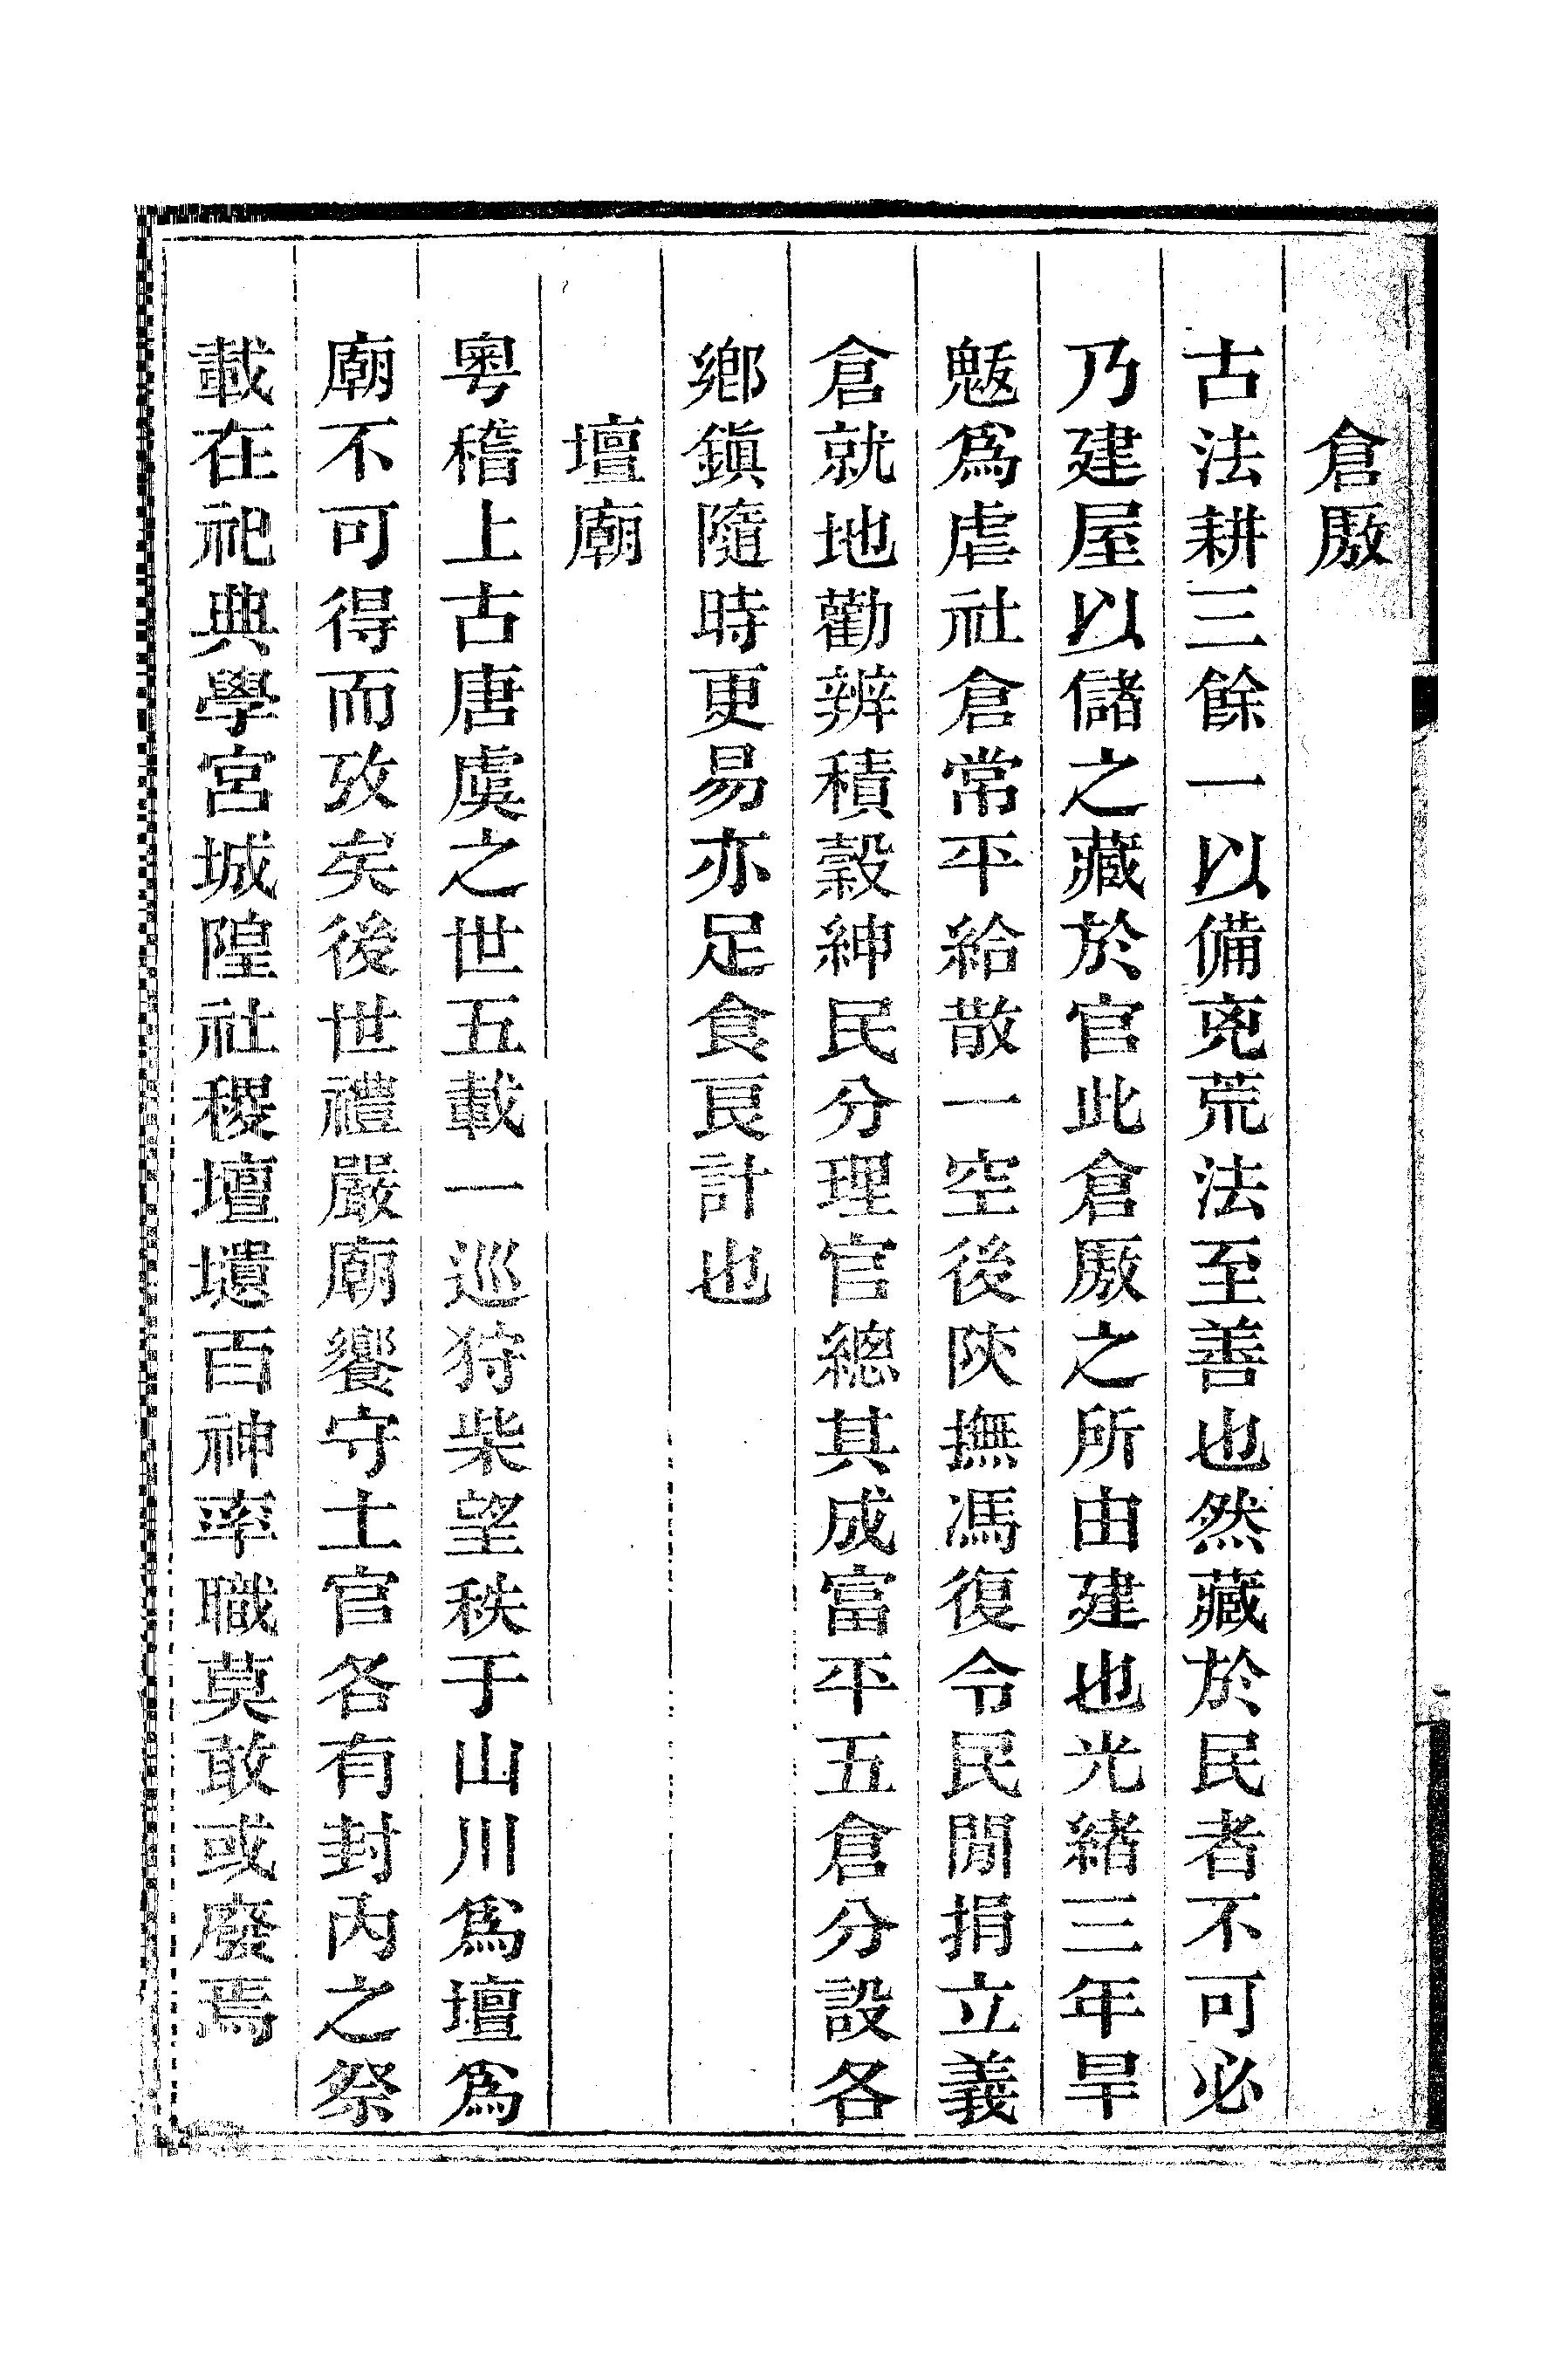 倉厫
古法耕三餘一以備㐫荒法至善也然藏於民者不可必
乃建屋以儲之藏於官此倉厫之所由建也光緒三年旱
魃爲虐社倉常平給散一空後陝撫馮復令民間捐立義
倉就地勸辦積穀紳民分理官總其成富平五倉分設各
鄉鎭隨時更易亦足食良計也
壇廟
粤稽上古唐虞之世五載一巡狩柴望秩于山川爲壇爲
廟不可得而攷矣後世禮嚴廟饗守土官各有封內之祭
載在祀典學宮城隍社稷壇壝百神率職莫敢或廢焉